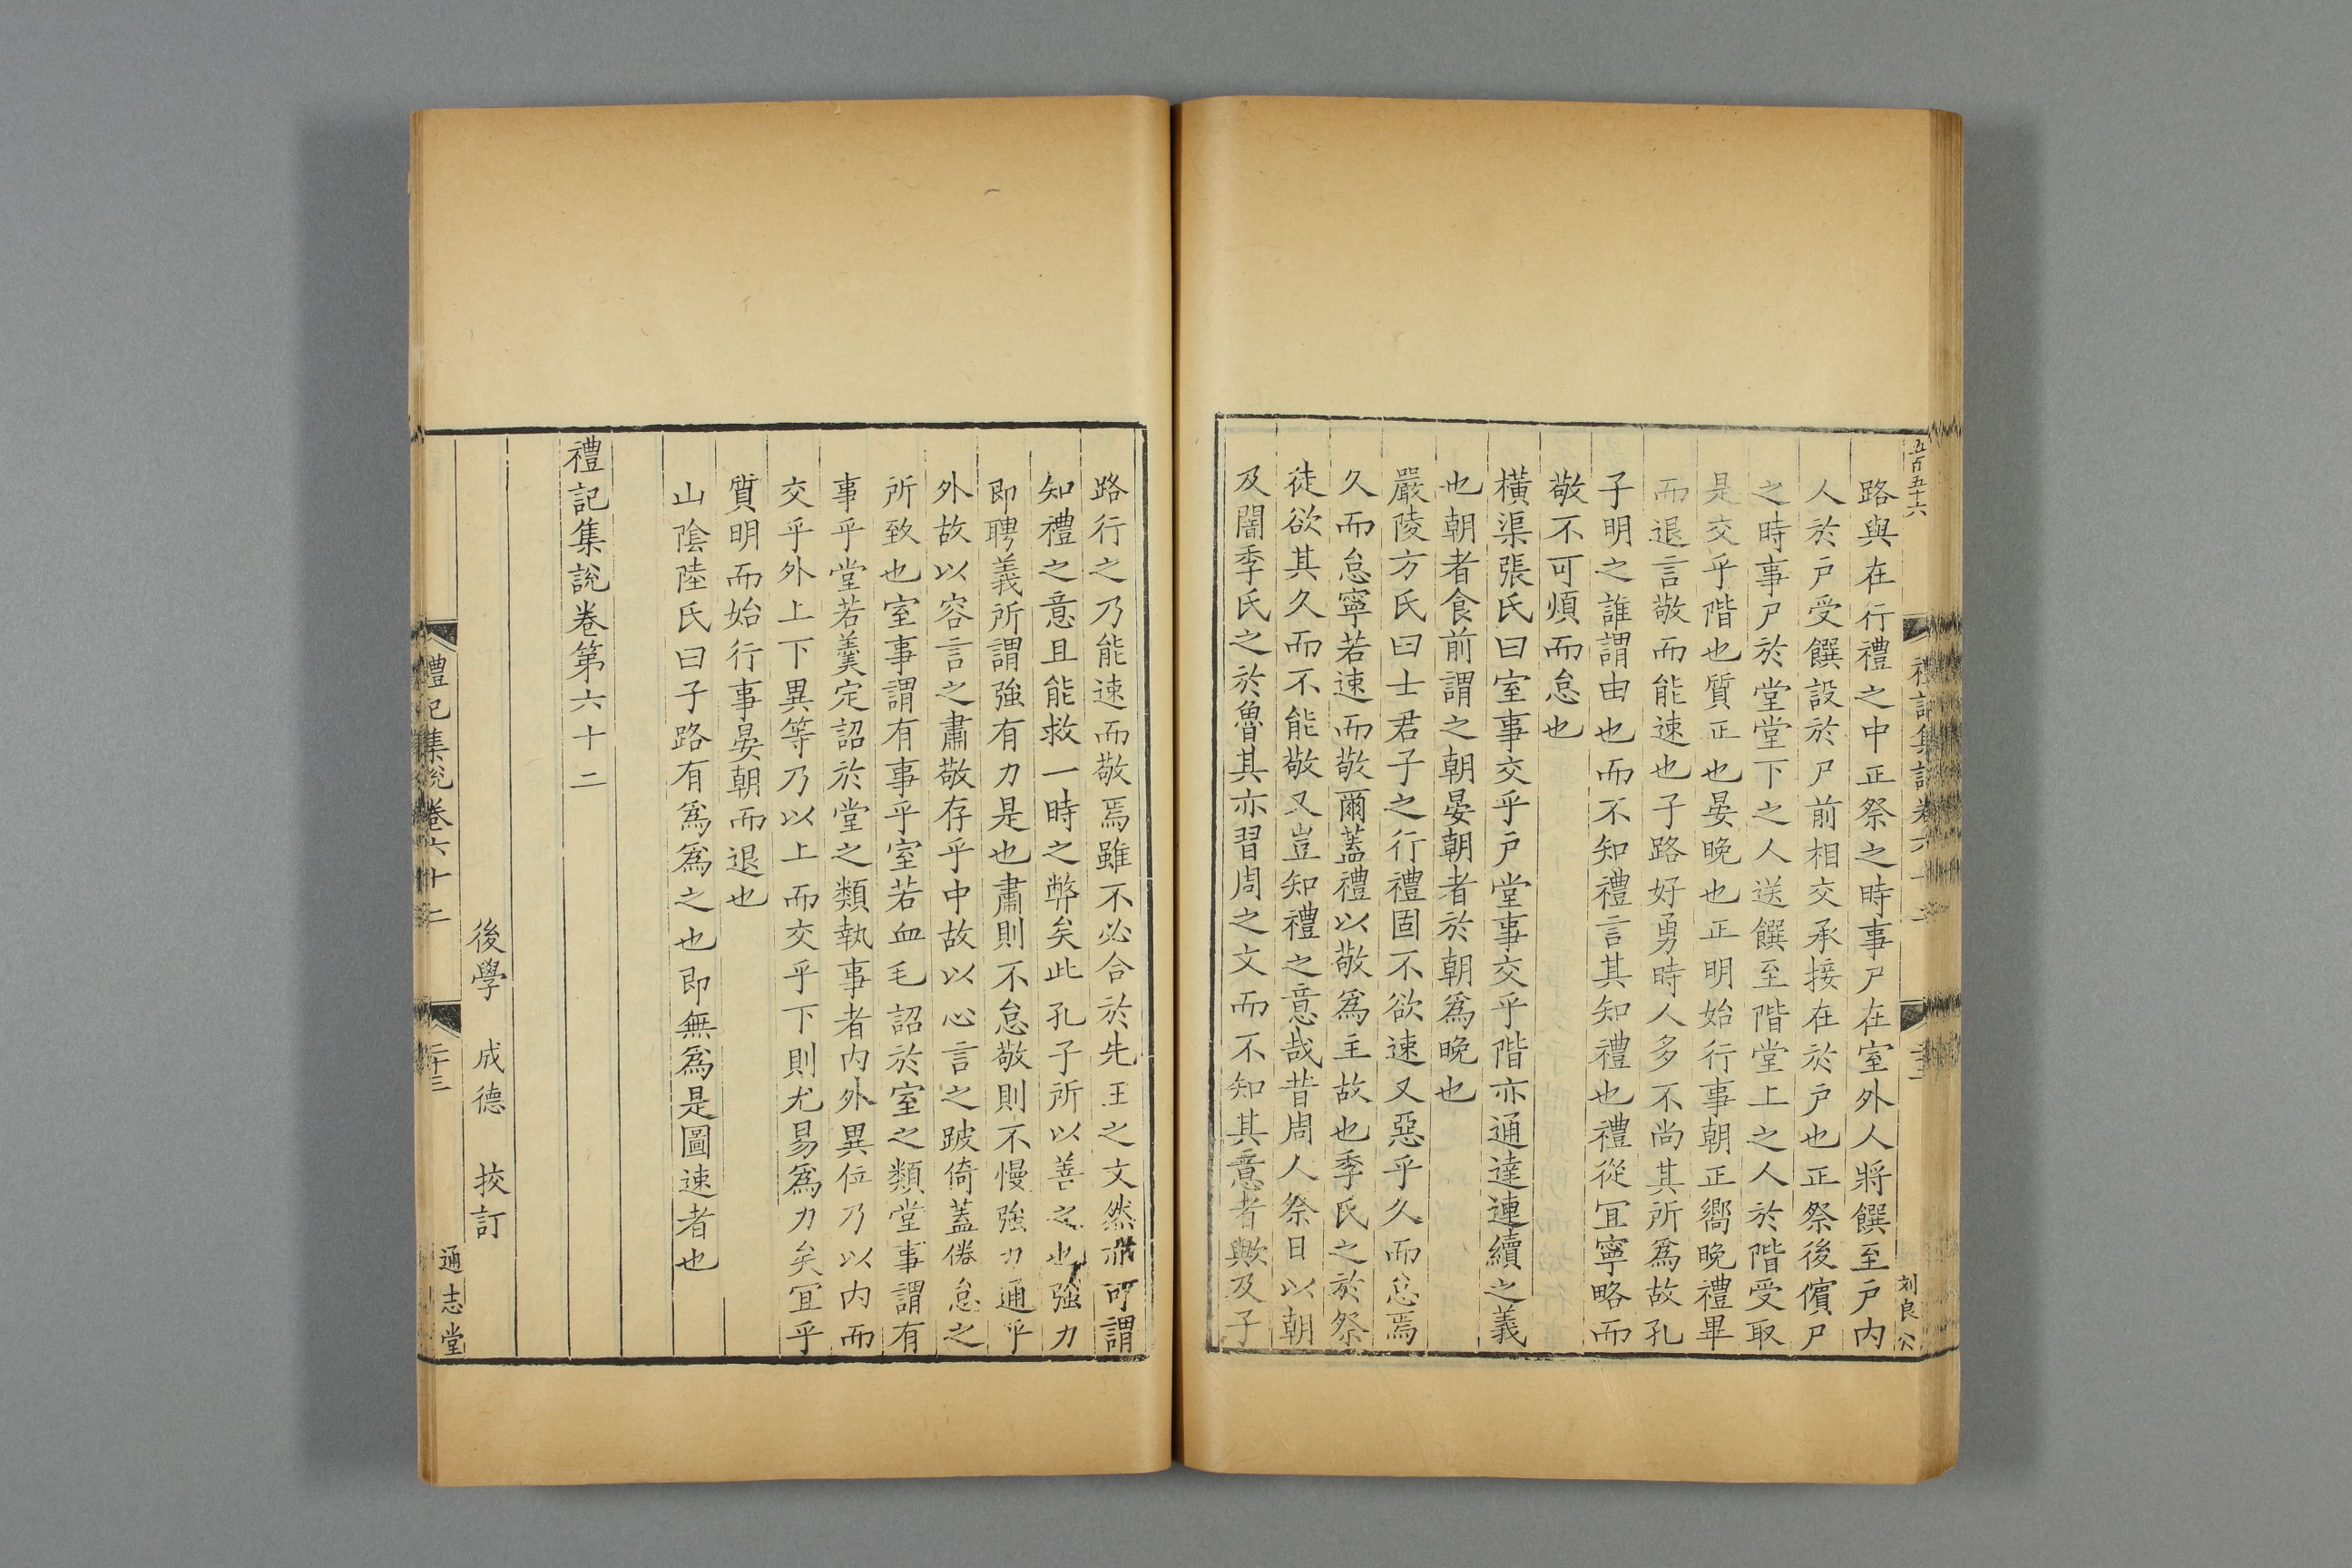 五百五十六
禮記集說卷六十二
刘良公
路與在行禮之中正祭之時事尸在室外人將饌至戶內
人於戶受饌設於尸前相交承接在於戶也正祭後儐尸
之時事尸於堂堂下之人送饌至階堂上之人於階受取
是交乎階也質正也晏晚也正明始行事朝正嚮晚禮畢
而退言敬而能速也子路好勇時人多不尚其所爲故孔
子明之誰謂由也而不知禮言其知禮也禮從宜寧略而
敬不可煩而怠也
橫渠張氏曰室事交乎戶堂事交乎階亦通達連續之義
也朝者食前謂之朝晏朝者於朝爲晚也
嚴陵方氏曰士君子之行禮固不欲速又惡乎久而怠焉
久而怠寧若速而敬爾蓋禮以敬爲主故也季氏之於祭
徒欲其久而不能敬又豈知禮之意哉昔周人祭日以朝
及闇季氏之於魯其亦習周之文而不知其意者歟及子
路行之乃能速而敬焉雖不必合於先王之文然亦可謂
知禮之意且能救一時之弊矣此孔子所以善之也強力
即聘義所謂強有力是也肅則不怠敬則不慢強力通乎
外故以容言之肅敬存乎中故以心言之跛倚蓋倦怠之
所致也室事謂有事乎室若血毛詔於室之類堂事謂有
事乎堂若羹定詔於堂之類執事者內外異位乃以內而
交乎外上下異等乃以上而交乎下則尤易爲力矣宜乎
質明而始行事晏朝而退也
山陰陸氏曰子路有爲爲之也即無爲是圖速者也
禮記集說卷第六十二
後學 成德 挍訂
禮記集說卷六十二
二十三
通志堂